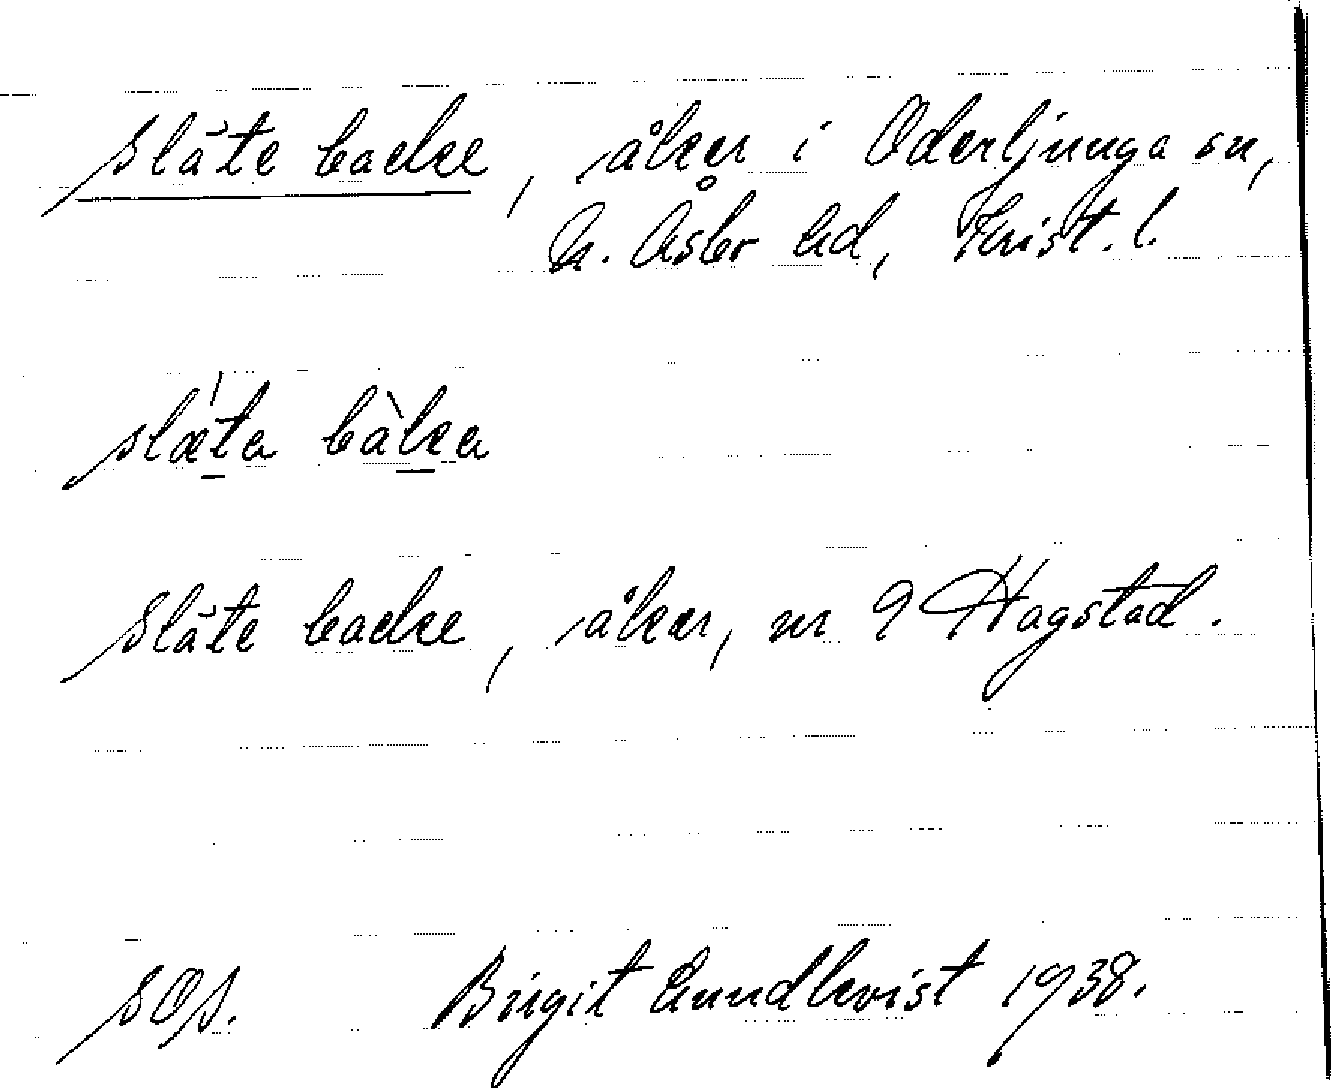 Släte backe, åker i Oderljunga sn,
N. Åsbo hd, Krist. l.
slæ̀ta bàka
Släte backe, åker, nr 9 Hagstad.
SOS. Birgit Lundkvist 1938.